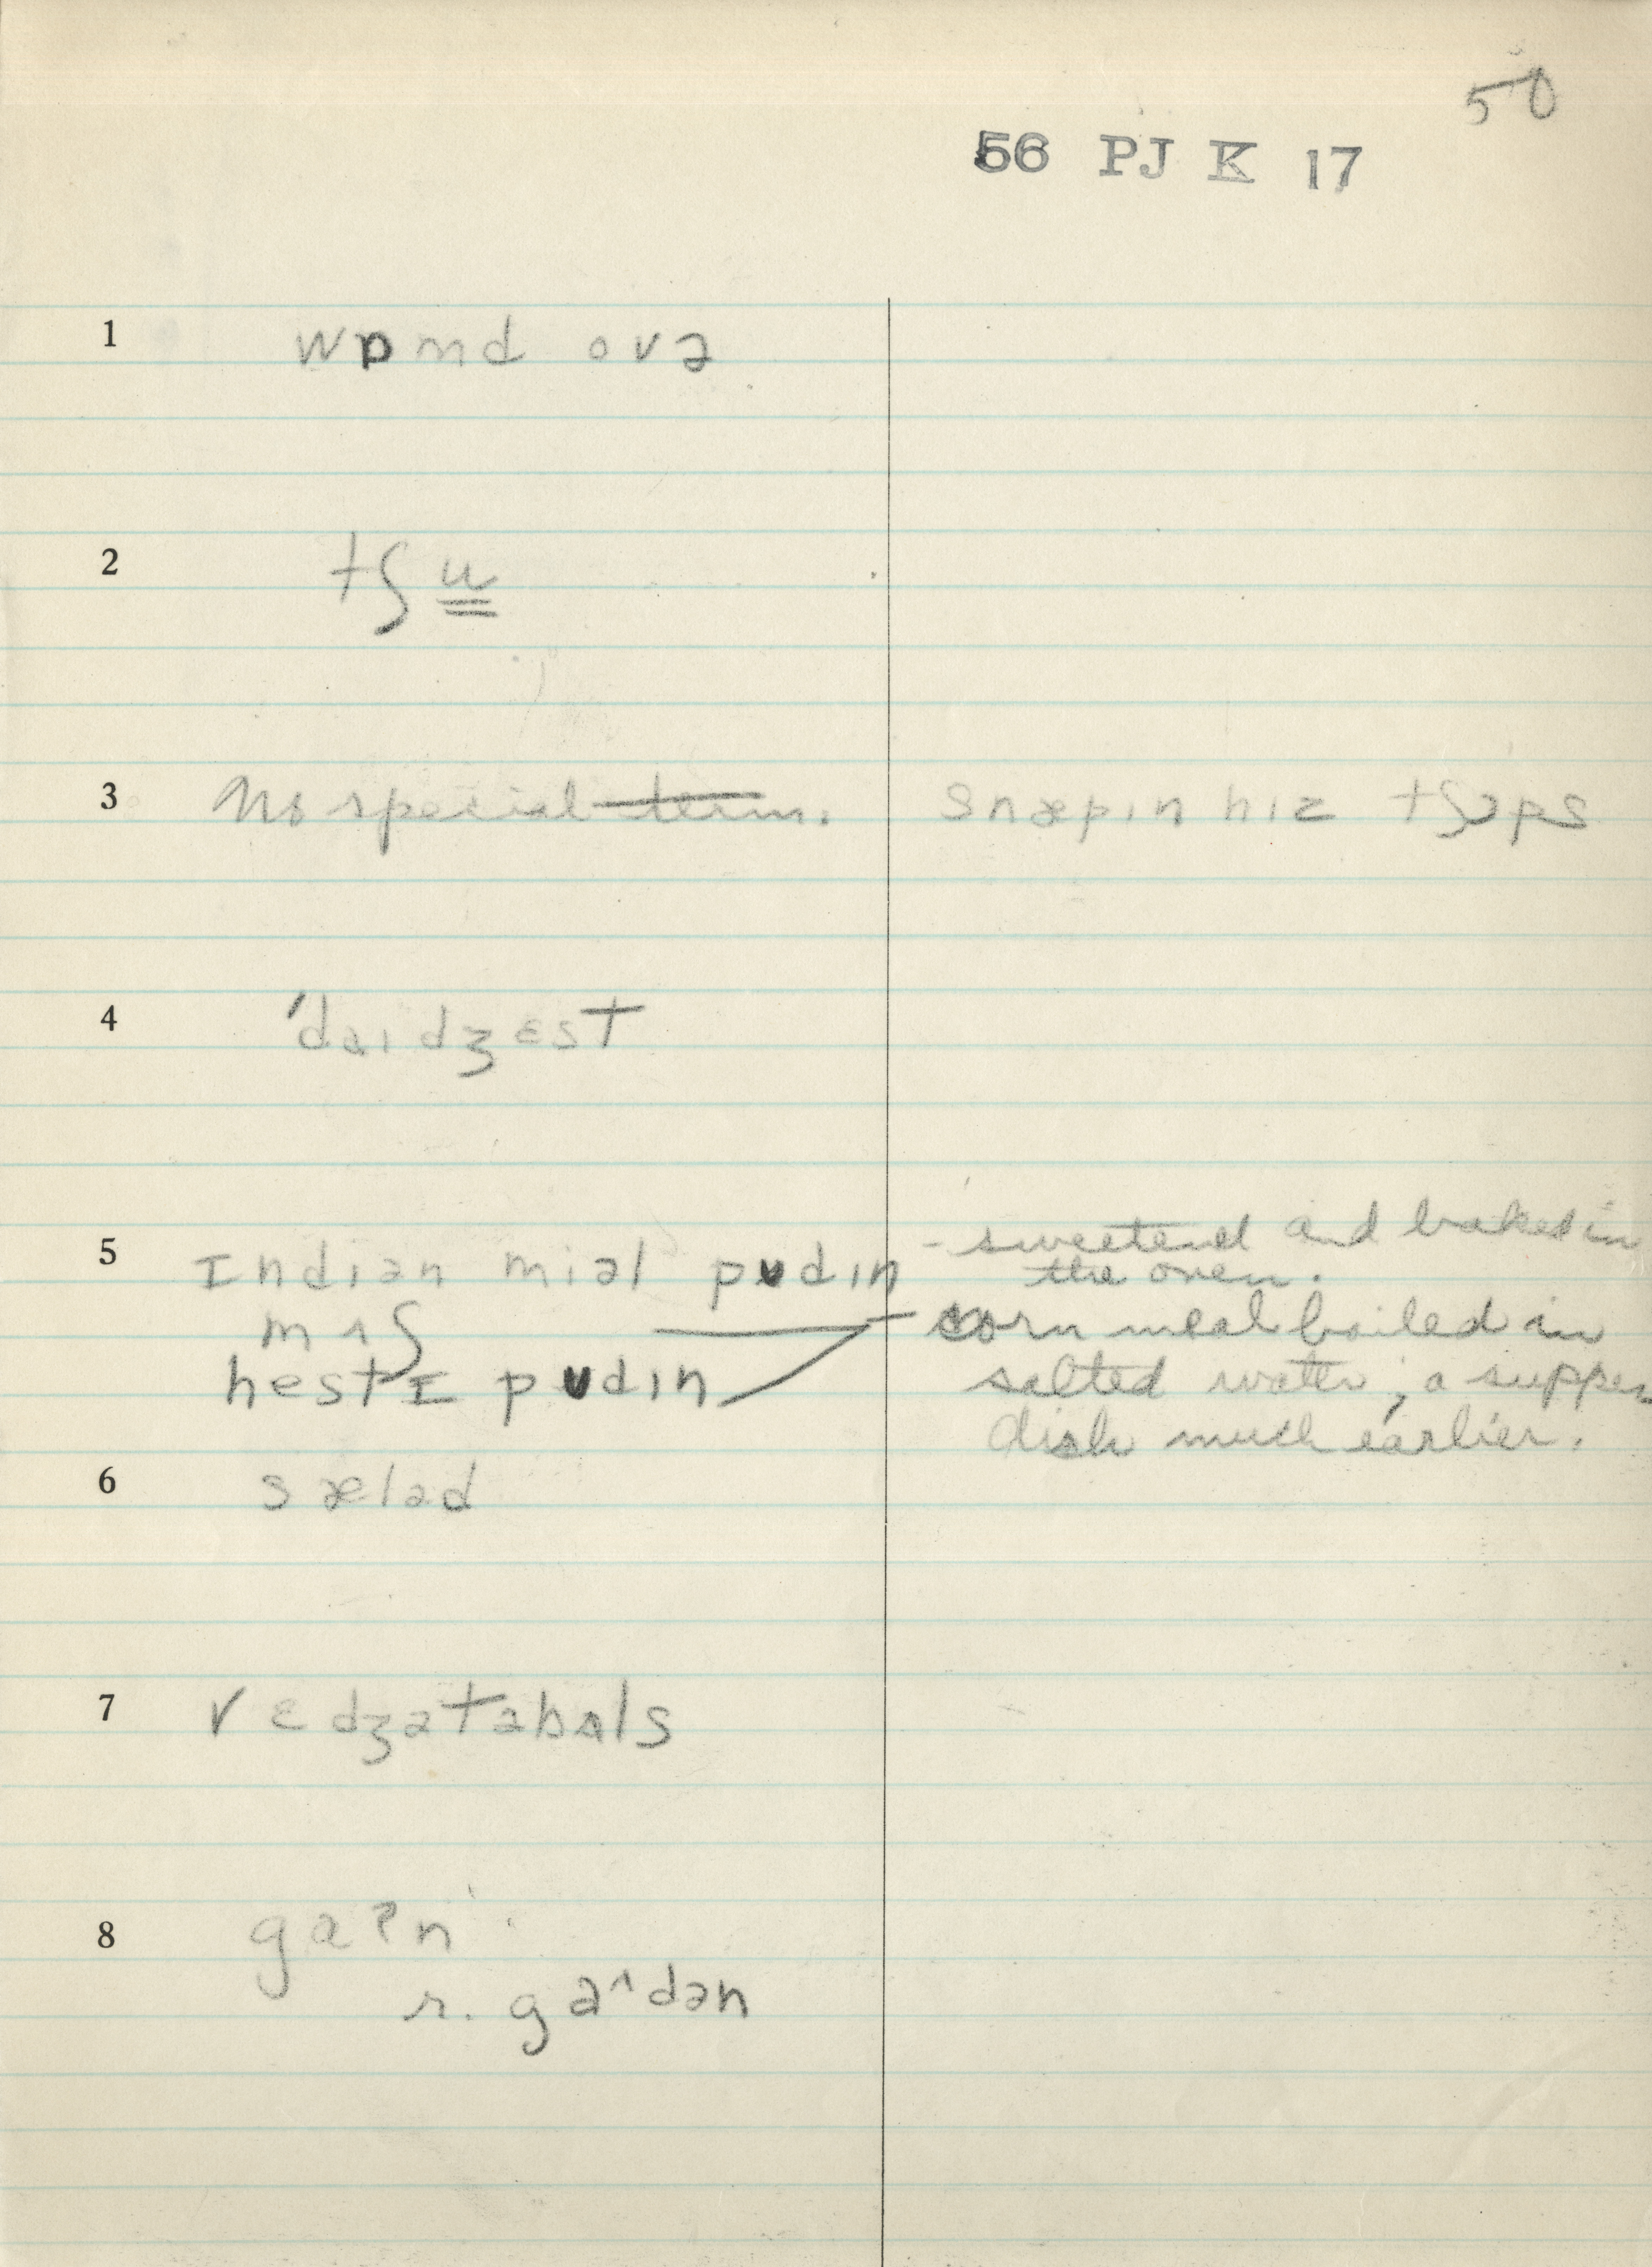 50
56 PJ K 17
1 wɒmd ovə
2 tʃu
3 No special term. snæpɪn hɪz tʃɔps
4 'daɪdʒɛst
5 Indɪən miəl pʊdɪn - sweetened and baked in
the oven.
mʌʃ corn meal boiled in
hestI pʊdɪn salted water; a supper
dish much earlier.
6 sæləd
7 vɛdʒətəbəls
8 gaʔn
r. gaʌdən